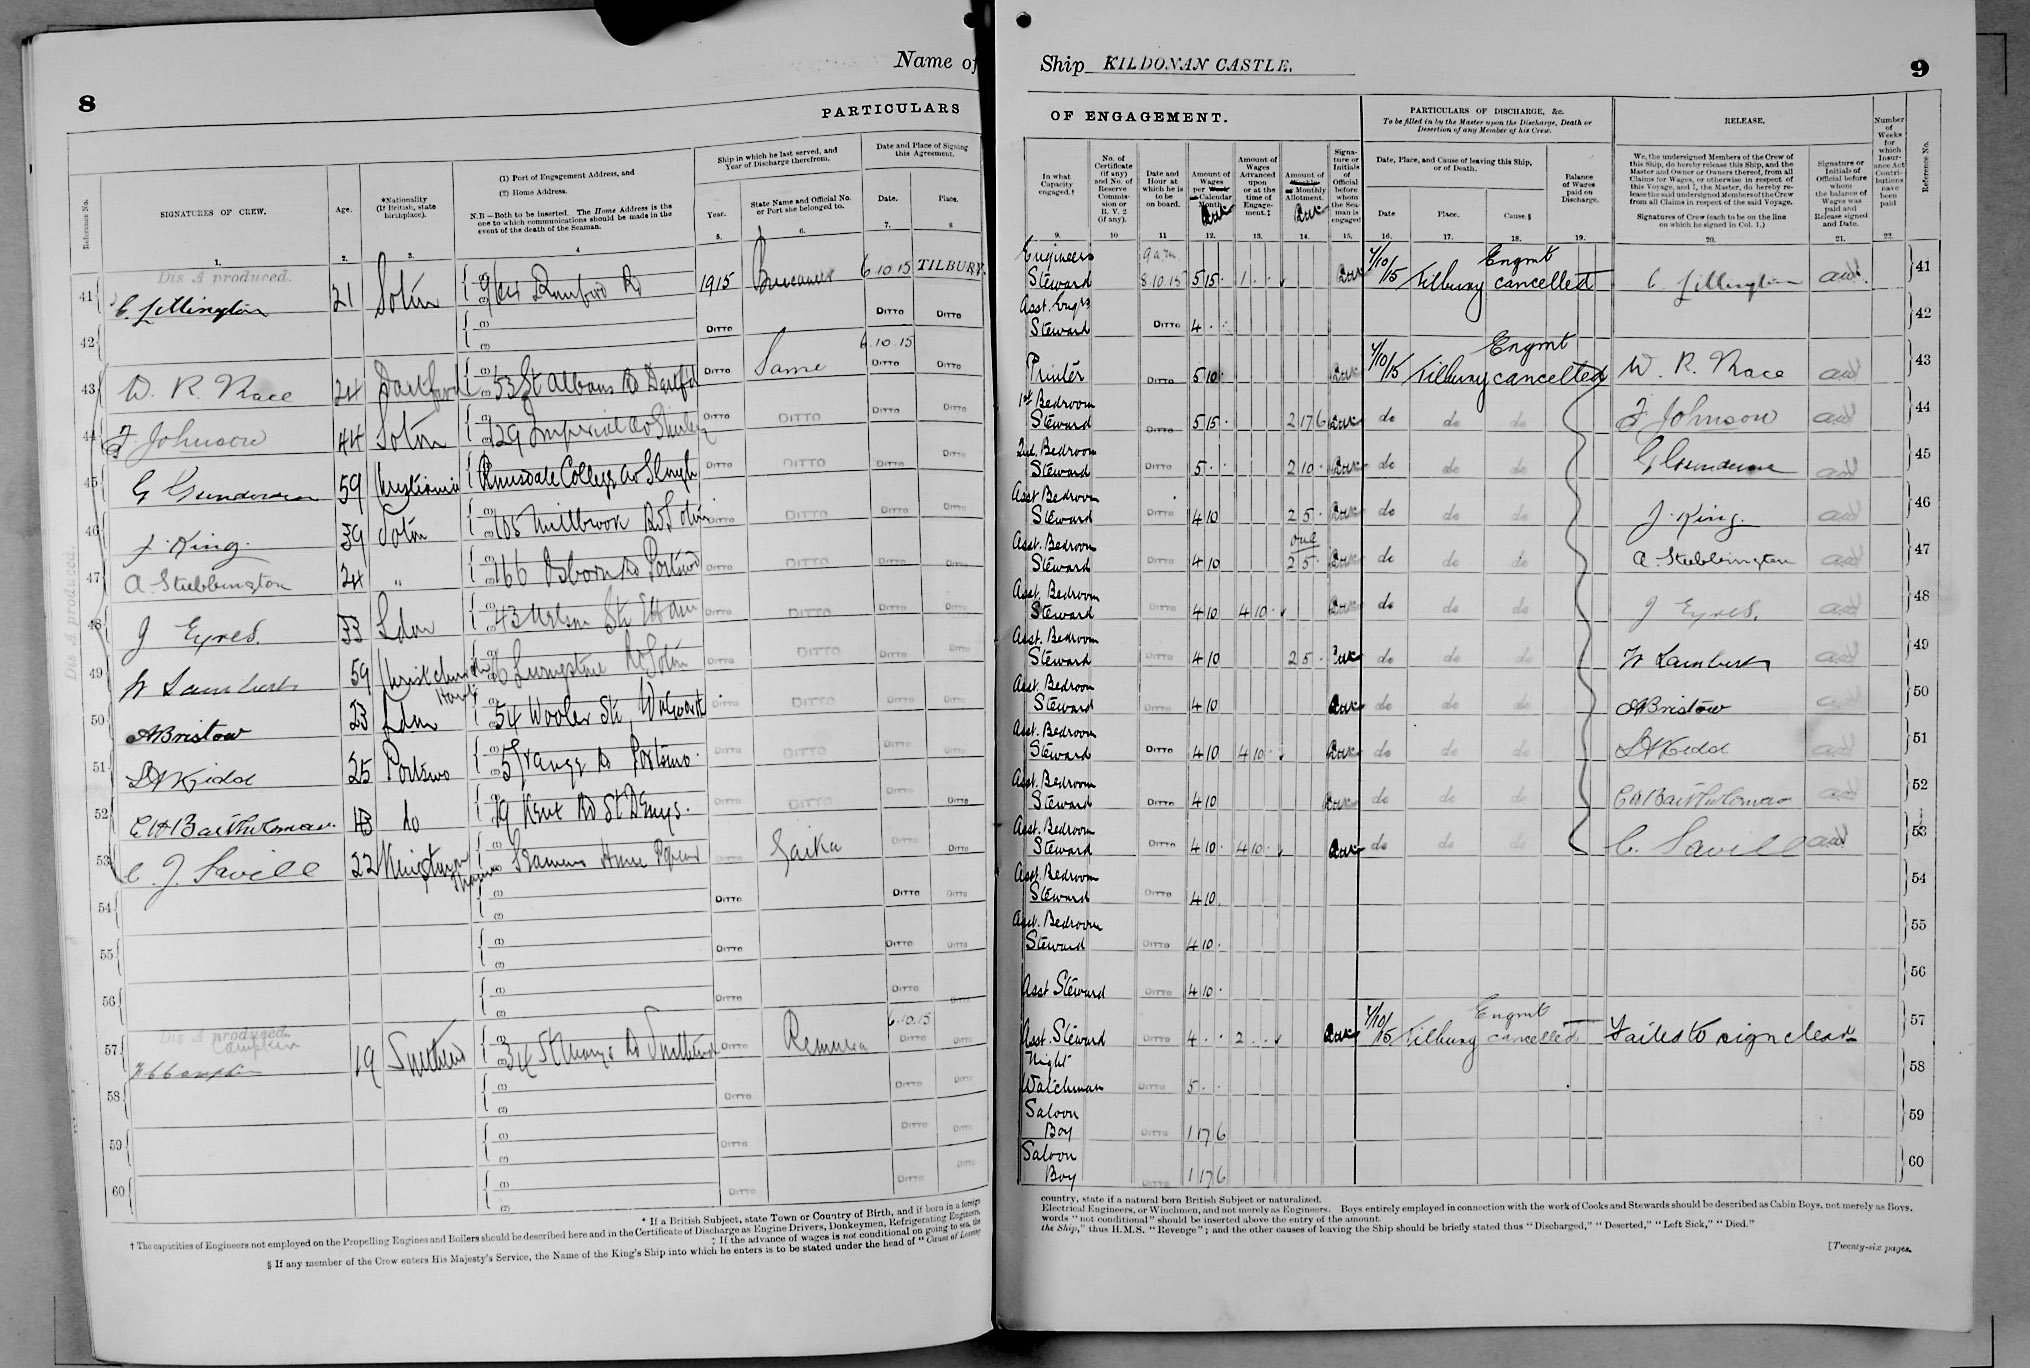 Name of
8
PARTICULARS
Reference No.
SIGNATURES OF CREW.
Age.
*Nationality
(If British, state
birthplace).
(1) Port of Engagement Address, and
(2) Home Address.
N.B.—Both to be inserted. The Home Address is the
one to which communications should be made in the
event of the death of the Seaman.
Ship in which he last served, and
Year of Discharge therefrom.
Year.
State Name and Official No.
or Port she belonged to.
Date and Place of Signing
this Agreement.
Date.
Place.
1. 2. 3. 4 5. 6. 7. 8
Dis A produced.
41 C. Lillington 21 Soton Rd 1915 6.10.15 TILBURY.
42 DITTO DITTO DITTO
6.10.15
43 W. R. 24 Dartford 53 St Albans Rd Dartfd DITTO Same DITTO DITTO
44 F Johnson 44 Soton 29 Imperial Av Shirley DITTO DITTO DITTO DITTO
45 G Gunderson 59 College Av Slough DITTO DITTO DITTO DITTO
46 J. King. 39 Soton 105 Millbrook Rd Soton DITTO DITTO DITTO DITTO
47 A. Stubbington 24 " 166 Osborn Rd DITTO DITTO DITTO DITTO
48 J Eyres. 33 Ldon 43 Nelson St DITTO DITTO DITTO DITTO
49 W Lambert 59 Christchurch Hants Livingstone Rd Soton DITTO DITTO DITTO DITTO
50 A Bristow 23 Ldon 54 Wooler St, Walworth DITTO DITTO DITTO DITTO
51 Kidd 25 Rd DITTO DITTO DITTO DITTO
52 C H Bartholomew. do Kent Rd St Denys. DITTO DITTO DITTO DITTO
53 C. J. Savill 22 Kingston DITTO Gaika DITTO DITTO
54 DITTO DITTO DITTO
55 DITTO DITTO DITTO
56 DITTO DITTO DITTO
Dis A produced.
Campkin
6.10.15
57 19 34 St Marys Rd DITTO Remuera DITTO DITTO
58 DITTO DITTO DITTO
59 DITTO DITTO DITTO
60 DITTO DITTO DITTO
Dis A produced.
* If a British Subject, state Town or Country of Birth, and if born in a foreign
† The capacities of Engineers not employed on the Propelling Engines and Boilers should be described here and in the Certificate of Discharge as Engine Drivers, Donkeymen, Refrigerating Engineers,
‡ If the advance of wages is not conditional on going to sea, the
§ If any member of the Crew enters His Majesty's Service, the Name of the King's Ship into which he enters is to be stated under the head of "Cause of Leaving
Ship KILDONAN CASTLE.
9
OF ENGAGEMENT.
PARTICULARS OF DISCHARGE, &c.
To be filled in by the Master upon the Discharge, Death or
Desertion of any Member of his Crew.
RELEASE.
In what
Capacity
engaged.†
No. of
Certificate
(if any)
and No. of
Reserve
Commis-
sion or
R. V. 2
(if any).
Date and
Hour at
which he is
to be
on board.
Amount of
Wages
per Week
or Calendar
Month.
Amount of
Wages
Advanced
upon
or at the
time of
Engage-
ment.‡
Amount of
Weekly
or Monthly
Allotment.
Signa-
ture or
Initials
of
Official
before
whom
the Sea-
man is
engaged
Date, Place, and Cause of leaving this Ship,
or of Death.
Date
Place.
Cause.§
Balance
of Wages
paid on
Discharge.
We, the undersigned Members of the Crew of
this Ship, do hereby release this Ship, and the
Master and Owner or Owners thereof, from all
Claims for Wages, or otherwise in respect of
this Voyage, and I, the Master, do hereby re-
lease the said undersigned Members of the Crew
from all Claims in respect of the said Voyage.
Signatures of Crew (each to be on the line
on which he signed in Col. 1.)
Signature or
Initials of
Official before
whom
the balance of
Wages was
paid and
Release signed
and Date.
Number
of
Weeks
for
which
Insur-
ance Act
Contri-
butions
have
been
paid
Reference No.
9. 10 11 12. 13. 14. 15. 16. 17. 18. 19. 20. 21. 22.
Engineers Steward 9 am 8.10.15 5 15 1 7/10/15 Tilbury Engmt cancelled C. Lillington 41
Asst. Engrs Steward DITTO 4 42
Printer DITTO 5 10 7/10/15 Tilbury Engmt cancelled W. R. 43
1st Bedroom Steward DITTO 5 15 2 17 6 do do do F Johnson 44
2nd Bedroom Steward DITTO 5 2 10 do do do G Gunderson 45
Asst Bedroom Steward DITTO 4 10 2 5 do do do J. King. 46
Asst. Bedroom Steward DITTO 4 10 2 5 do do do A. Stubbington 47
Asst. Bedroom Steward DITTO 4 10 4 10 do do do J Eyres. 48
Asst. Bedroom Steward DITTO 4 10 2 5 do do do W Lambert 49
Asst. Bedroom Steward DITTO 4 10 do do do A Bristow 50
Asst. Bedroom Steward DITTO 4 10 4 10 do do do Kidd 51
Asst. Bedroom Steward DITTO 4 10 do do do C H Bartholomew 52
Asst. Bedroom Steward DITTO 4 10 4 10 do do do C. Savill 53
Asst. Bedroom Steward DITTO 4 10 54
Asst. Bedroom Steward DITTO 4 10 55
Asst Steward DITTO 4 10 56
Asst. Steward DITTO 4 2 7/10/15 Tilbury Engmt cancelled Failed to sign clear 57
Night Watchman DITTO 5 58
Saloon Boy DITTO 1 17 6 59
Saloon Boy DITTO 1 17 6 60
country, state if a natural born British Subject or naturalized.
Electrical Engineers, or Winchmen, and not merely as Engineers. Boys entirely employed in connection with the work of Cooks and Stewards should be described as Cabin Boys, not merely as Boys.
words "not conditional" should be inserted above the entry of the amount.
the Ship," thus H.M.S. "Revenge"; and the other causes of leaving the Ship should be briefly stated thus "Discharged," "Deserted," "Left Sick," "Died."
[Twenty-six pages.